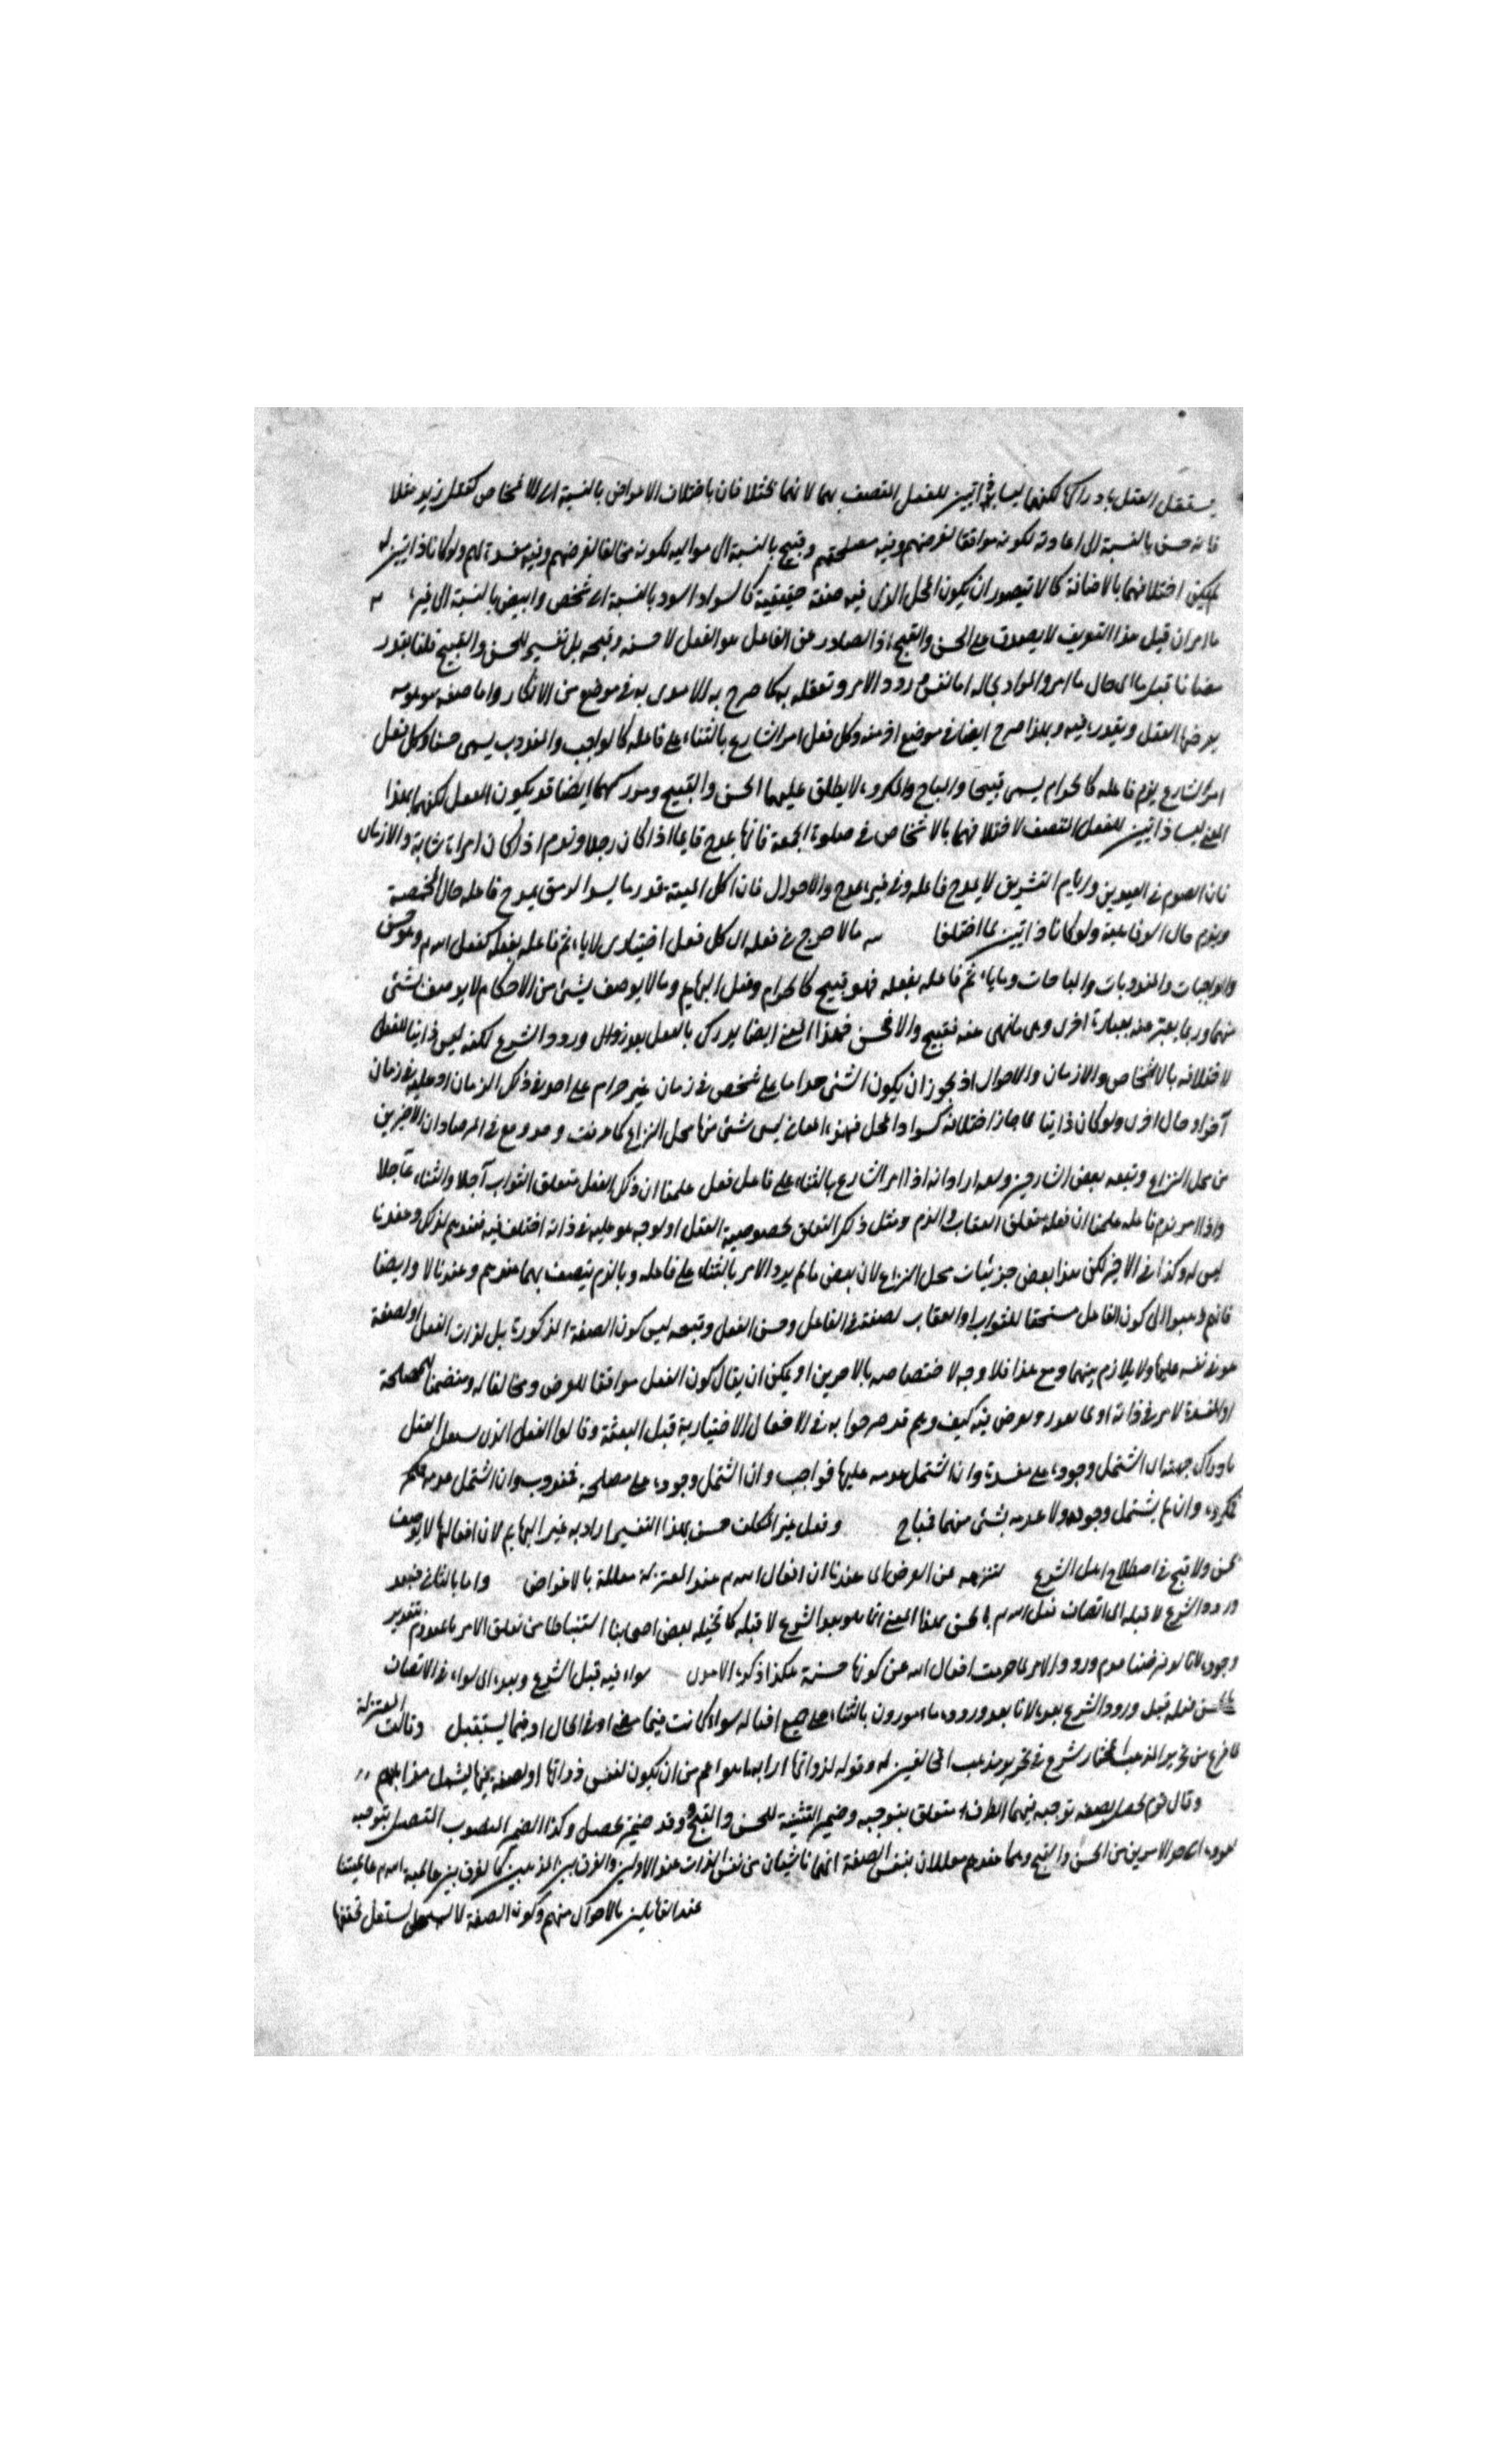 يستقل العقل بادراكها لكنهما ليسا بذاتيين للفعل المتصف بهما لانهما يختلفان باختلاف الاغراض بالنسبة الى الاشخاص كقتل زيد مثلا
فانه حسن بالنسبة الى اعاديه لكونه موافقا لغرضهم وفيه مصلحتهم وقبيح بالنسبة الى مواليه لكونه مخالفا لغرضهم وفيه مفسدة لهم ولو كانا ذاتيين له
لم يكن اختلافهما بالاضافة كما لا يتصور ان يكون المحل الذي فيه صفة حقيقية كالسواد اسود بالنسبة الى شخص وابيض بالنسبة الى غيره
ما امر ان قيل هذا التعريف لا يصدق على الحسن والقبيح اذ الصادر عن الفاعل هو الفعل لا حسنه وقبحه بل تفسير للحسن والقبيح قلنا يقدر
مضافا قبل ما اى حال ما امر والمراد بحاله اما نفس ورود الامر وتعلقه به كما صرح به الامدى به في موضع من الابكار واما صفة موهومة
يفرضها العقل ويقدر فيه وبهذا صرح ايضا في موضع اخر منه وكل فعل امر الشارع بالثناء على فاعله كالواجب والمندوب يسمى حسنا وكل فعل
امر الشارع بذم فاعله كالحرام يسمى قبيحا والمباح والمكروه لا يطلق عليهما الحسن والقبيح ومدركهما ايضا قد يكون العقل لكنهما بهذا
المعنى ليسا ذاتيين للفعل المتصف لاختلافهما بالاشخاص في صلوة الجمعة فانها يمدح فاعلها اذا كان رجلا ويذم اذا كان امراة شابة والازمان
فان الصوم في العيدين وايام التشريق لا يمدح فاعله وفي غيره يمدح والاحوال فان اكل الميتة قدر ما يسد الرمق يمدح فاعله حال المخمصة
ويذم حال الرفاهية ولو كانا ذاتيين لما اختلفا مالا حرج في فعله اى كل فعل اختيارى لا ياثم فاعله بفعله كفعل الله وهو حسن
والواجبات والمندوبات والمباحات وما ياثم فاعله بفعله فهو قبيح كالحرام وفعل البهايم ومالا يوصف بشئ من الاحكام لا يوصف بشئ
منهما وربما يعبر عنه بعبارة اخرى وهى ما نهى عنه فقبيح والا فحسن فهذا المعنى ايضا يدرك بالعقل بعد ورود الشرع لكنه ليس ذاتيا للفعل
لاختلافه بالاشخاص والازمان والاحوال اذ يجوز ان يكون الشئ حراما على شخص في زمان غير حرام على اخر في ذلك الزمان او عليه في زمان
آخر او حال اخرى ولو كان ذاتيا لما جاز اختلافه كسواد المحل فهذه المعانى ليس شئ منها محل النزاع كما عرفت وصرح في المرصاد ان الاخيرين
من محل النزاع وتبعه بعض الشارحين ولعله اراد انه اذا امر الشارع بالثناء على فاعل فعل علمنا ان ذلك الفعل متعلق الثواب آجلا والثناء عاجلا
واذا امر بذم فاعله علمنا ان فعله متعلق العقاب والذم ومثل ذلك التعلق لخصوصية الفعل او لوجه هو عليه في ذاته اختلف فيه فعندهم لذلك وعندنا
ليس له وكذا في الاخير لكن هذا بعض جزئيات محل النزاع لان بعض مالم يرد الامر بالثناء على فاعله وبالذم يتصف بهما عندهم وعندنا لا وايضا
فانهم ذهبوا الى كون الفاعل مستحقا للثواب او العقاب لصفة في الفاعل وحسن الفعل وقبحه ليس كون الصفة المذكورة بل لذات الفعل او لصفة
هو في نفسه عليها ولا يلازم بينهما ومع هذا فلا وجه لاختصاصه بالامرين او يمكن ان يقال كون الفعل موافقا للغرض ومخالفا له ومتضمنا للمصلحة
او المفسدة لامر في ذاته او لما يقدر ويفرض فيه كيف وهم قد صرحوا به في الافعال الاختيارية قبل البعثة وقالوا الفعل الذى يستقل العقل
بادراك جهته ان اشتمل وجوده على مفسدة وان اشتمل عدمه عليها فواجب وان اشتمل وجوده على مصلحة فمندوب وان اشتمل عدمه عليها
فمكروه وان لم يشتمل وجوده ولا عدمه بشئ منهما فمباح وفعل غير المكلف حسن بهذا التفسير اراد به غير البهايم لان افعالها لا يوصف
بحسن ولا قبح في اصطلاح اهل الشرع لتنزهه عن الغرض اى عندنا ان افعال الله عند المعتزلة معللة بالاغراض واما بالثاني فبعد
ورود الشرع لا قبله اى اتصاف فعل الله بالحسن بهذا المعنى انما هو بعد الشرع لا قبله كما تخيله بعض اصحابنا استنباطا من تعلق الامر بالمعدوم بتقدير
وجوده لانا لو فرضنا عدم ورود الامر لما عرفت افعال الله عن كونها حسنة هكذا ذكره الامدى سواء فيه قبل الشرع وبعده اى سواء في الاتصاف
بالحسن فعله قبل ورود الشرع بعده لانا بعد وروده مامورون بالثناء على جميع افعاله سواء كانت فيما مضى او في الحال او فيما يستقبل وقالت المعتزلة
لما فرغ من تحرير المذهب المختار شرع في تحرير مذهب المخالفين له وقوله لذواتها اراد به ما هو اعم من ان يكون لنفس ذواتها او لصفة فيها ليشمل مذاهبهم
وقال قوم لحصل بصفة توجبه فيهما الظرف متعلق بتوجبه وضمير التثنية للحسن والقبح وقد ضمير يحصل وكذا الضمير المنصوب المتصل بتوجبه
يعود الى احد الامرين من الحسن والقبح وهما عندهم معللان بنفس الصفة انهما ناشيان من نفس الذات عند الاولين والفرق بين المذهبين كالفرق بين عالمية الله وعالميتنا
عند القايلين بالاحوال منهم وكون الصفة لا يستقل تحققها